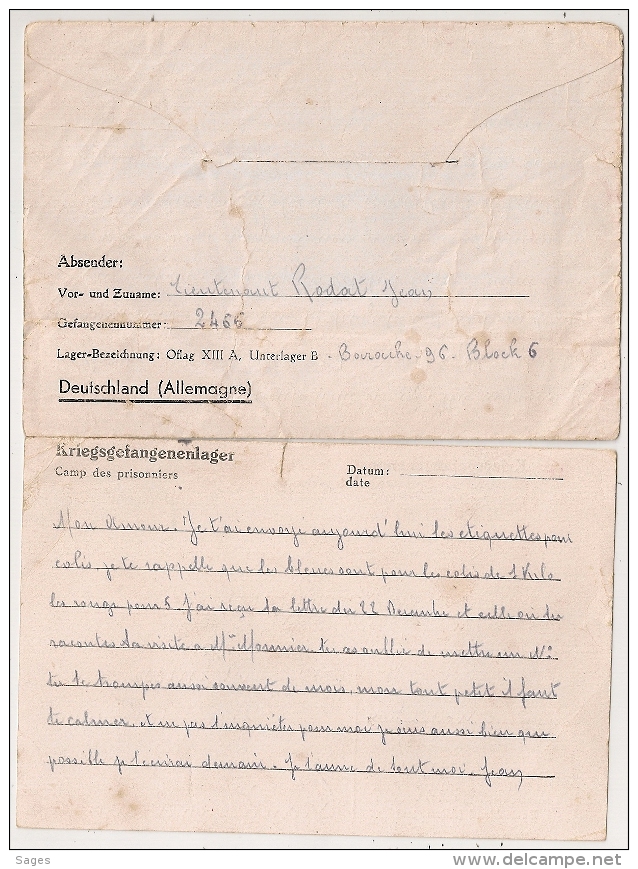 Absender:
Vor- und Zuname: Lieutenant Rodat Jean
Gefangenennummer: 2466
Lager-Bezeichnung: Oflag XIII A, Unterlager B - Barache 96 - Block 6
Deutschland (Allemagne)
Kriegsgefangenenlager
Camp des prisonniers
Datum:
date
Mon Amour. Je t'ai envoye aujourd'hui les etiquettes pour
colis, je te rappelle que les bleues sont pour les colis de 1 Kilo
les rouge pour 5 J'ai reçu ta lettre du 22 Decembre et celle où tu
racontes ta visite a Mr Monnier tu as oublié de mettre un No
tu te trompes aussi souvent de mois, mon tout petit il faut
te calmer, et ne pas t'inquiéter pour moi je suis aussi bien que
possible je t'ecrirai demain. Je t'aime de tout moi. Jean
Sages
www.delcampe.net